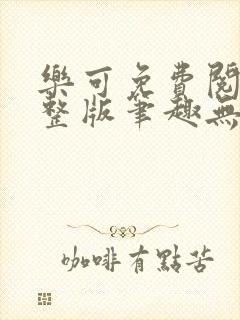 樂可免費閱
整版筆趣無
咖啡有點苦